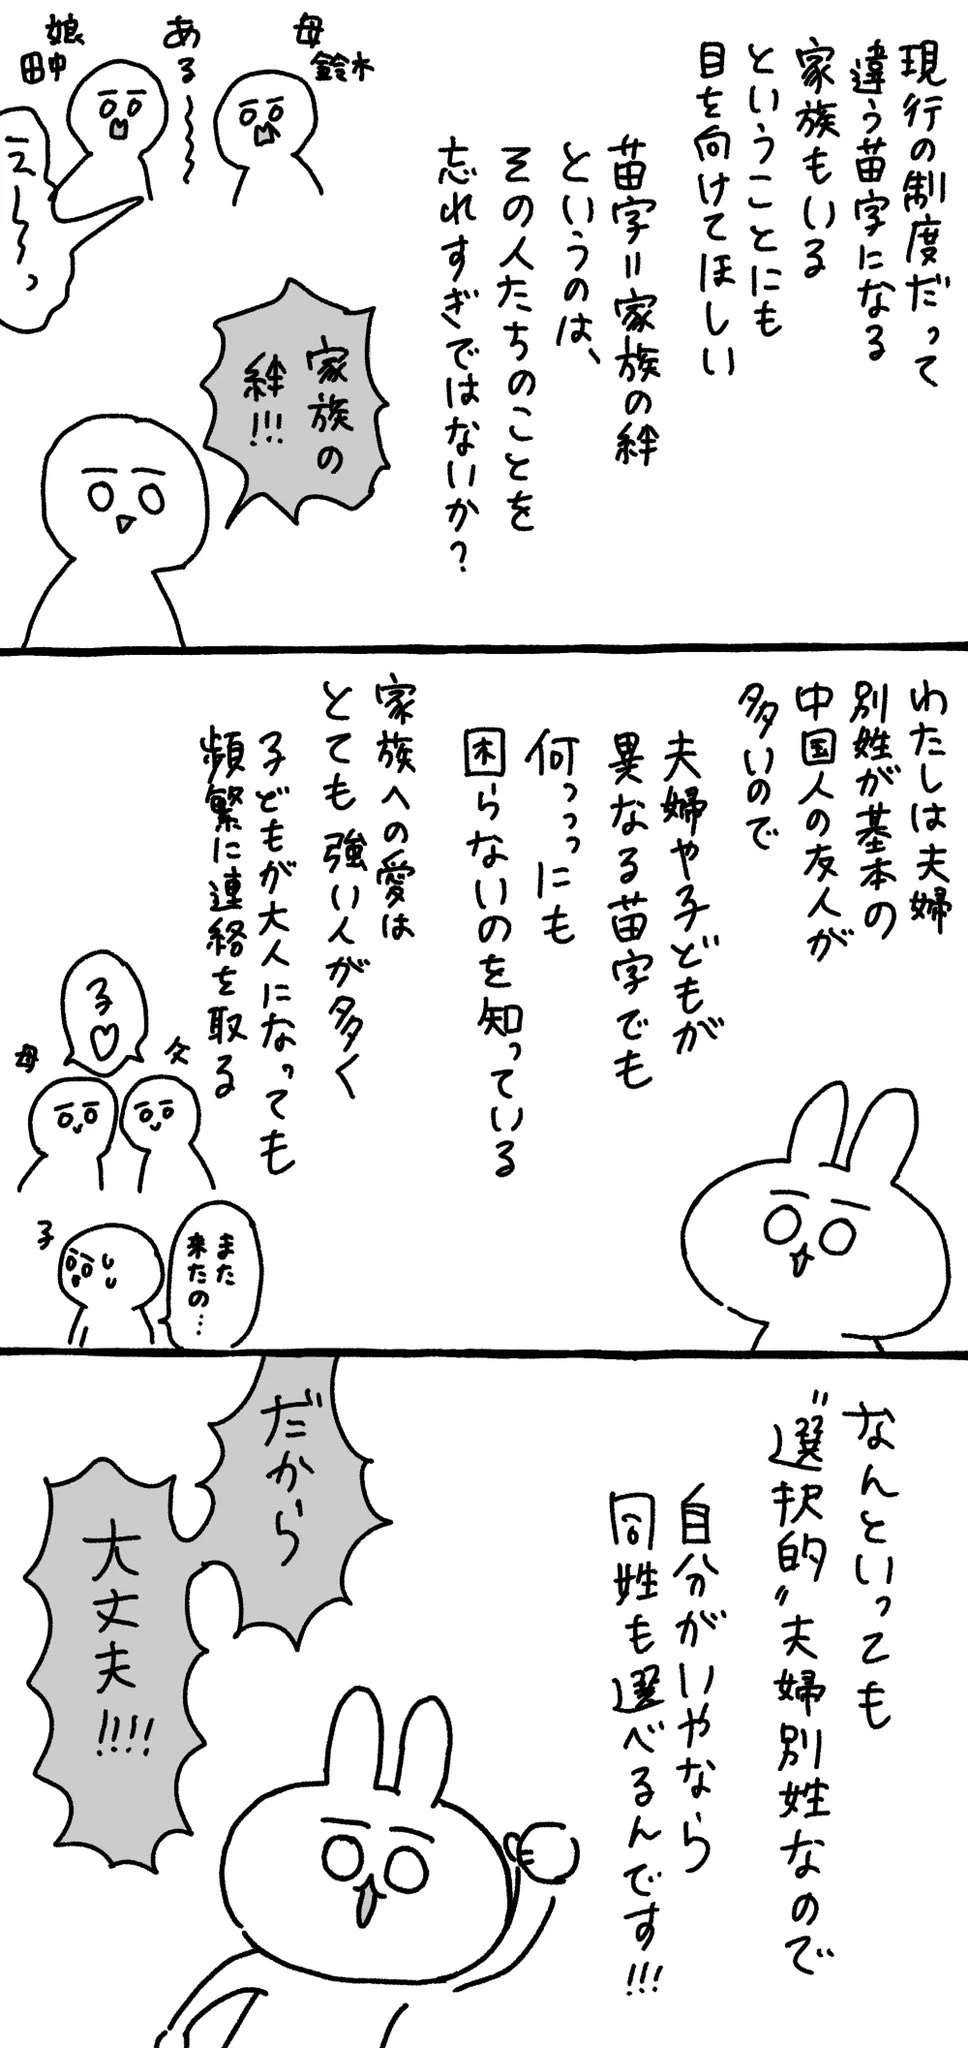 現行の制度だって
違う苗字になる
家族もいる
ということにも
目を向けてほしい
苗字=家族の絆
というのは、
その人たちのことを
忘れすぎではないか?
母
鈴木
ある〜〜
娘
田中
え〜〜っ
家族の
絆!!!
わたしは夫婦
別姓が基本の
中国人の友人が
多いので
夫婦や子どもが
異なる苗字でも
何っっっにも
困らないのを知っている
家族への愛は
とても強い人が多く
子どもが大人になっても
頻繁に連絡を取る
子♡
父
母
また
来たの…
子
なんといっても
"選択的"夫婦別姓なので
自分がいやなら
同姓も選べるんです!!!
だから
大丈夫!!!!